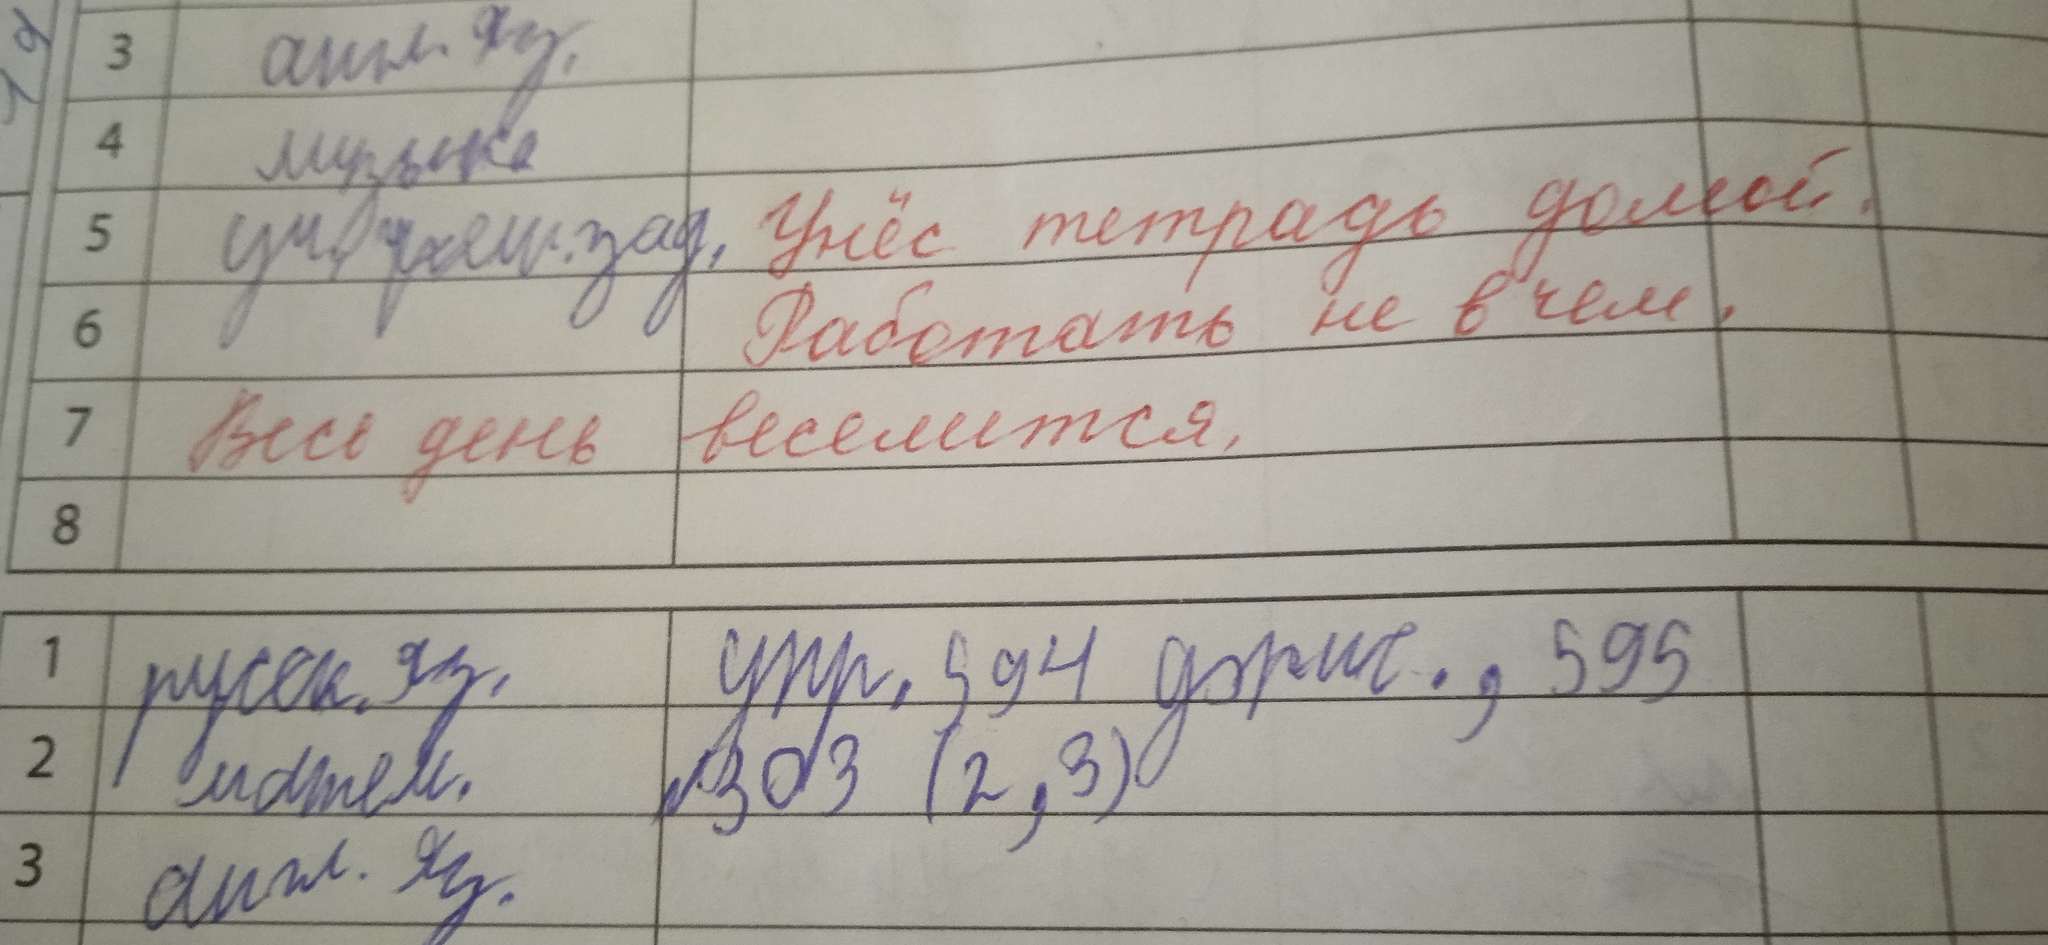 3 англ. яз.
4 музыка
5 уч. реш. зад. Унёс тетрадь домой.
6 Работать не в чем.
7 Весь день веселится.
8
1 русск. яз. упр. 594 , 595
2 матем. №303 (2, 3)
3 англ. яз.